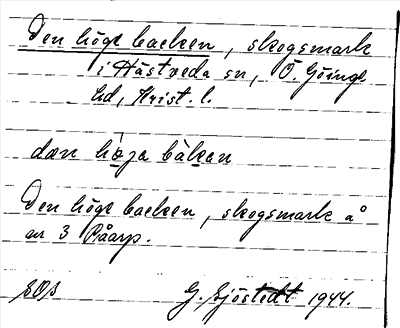 Den höge backen, skogsmark
i Hästveda sn, Ö. Göinge
hd, Krist. l.
dæn høja bakæn
Den höge backen, skogsmark å
nr 3 Råarp.
G. Sjöstedt 1944.